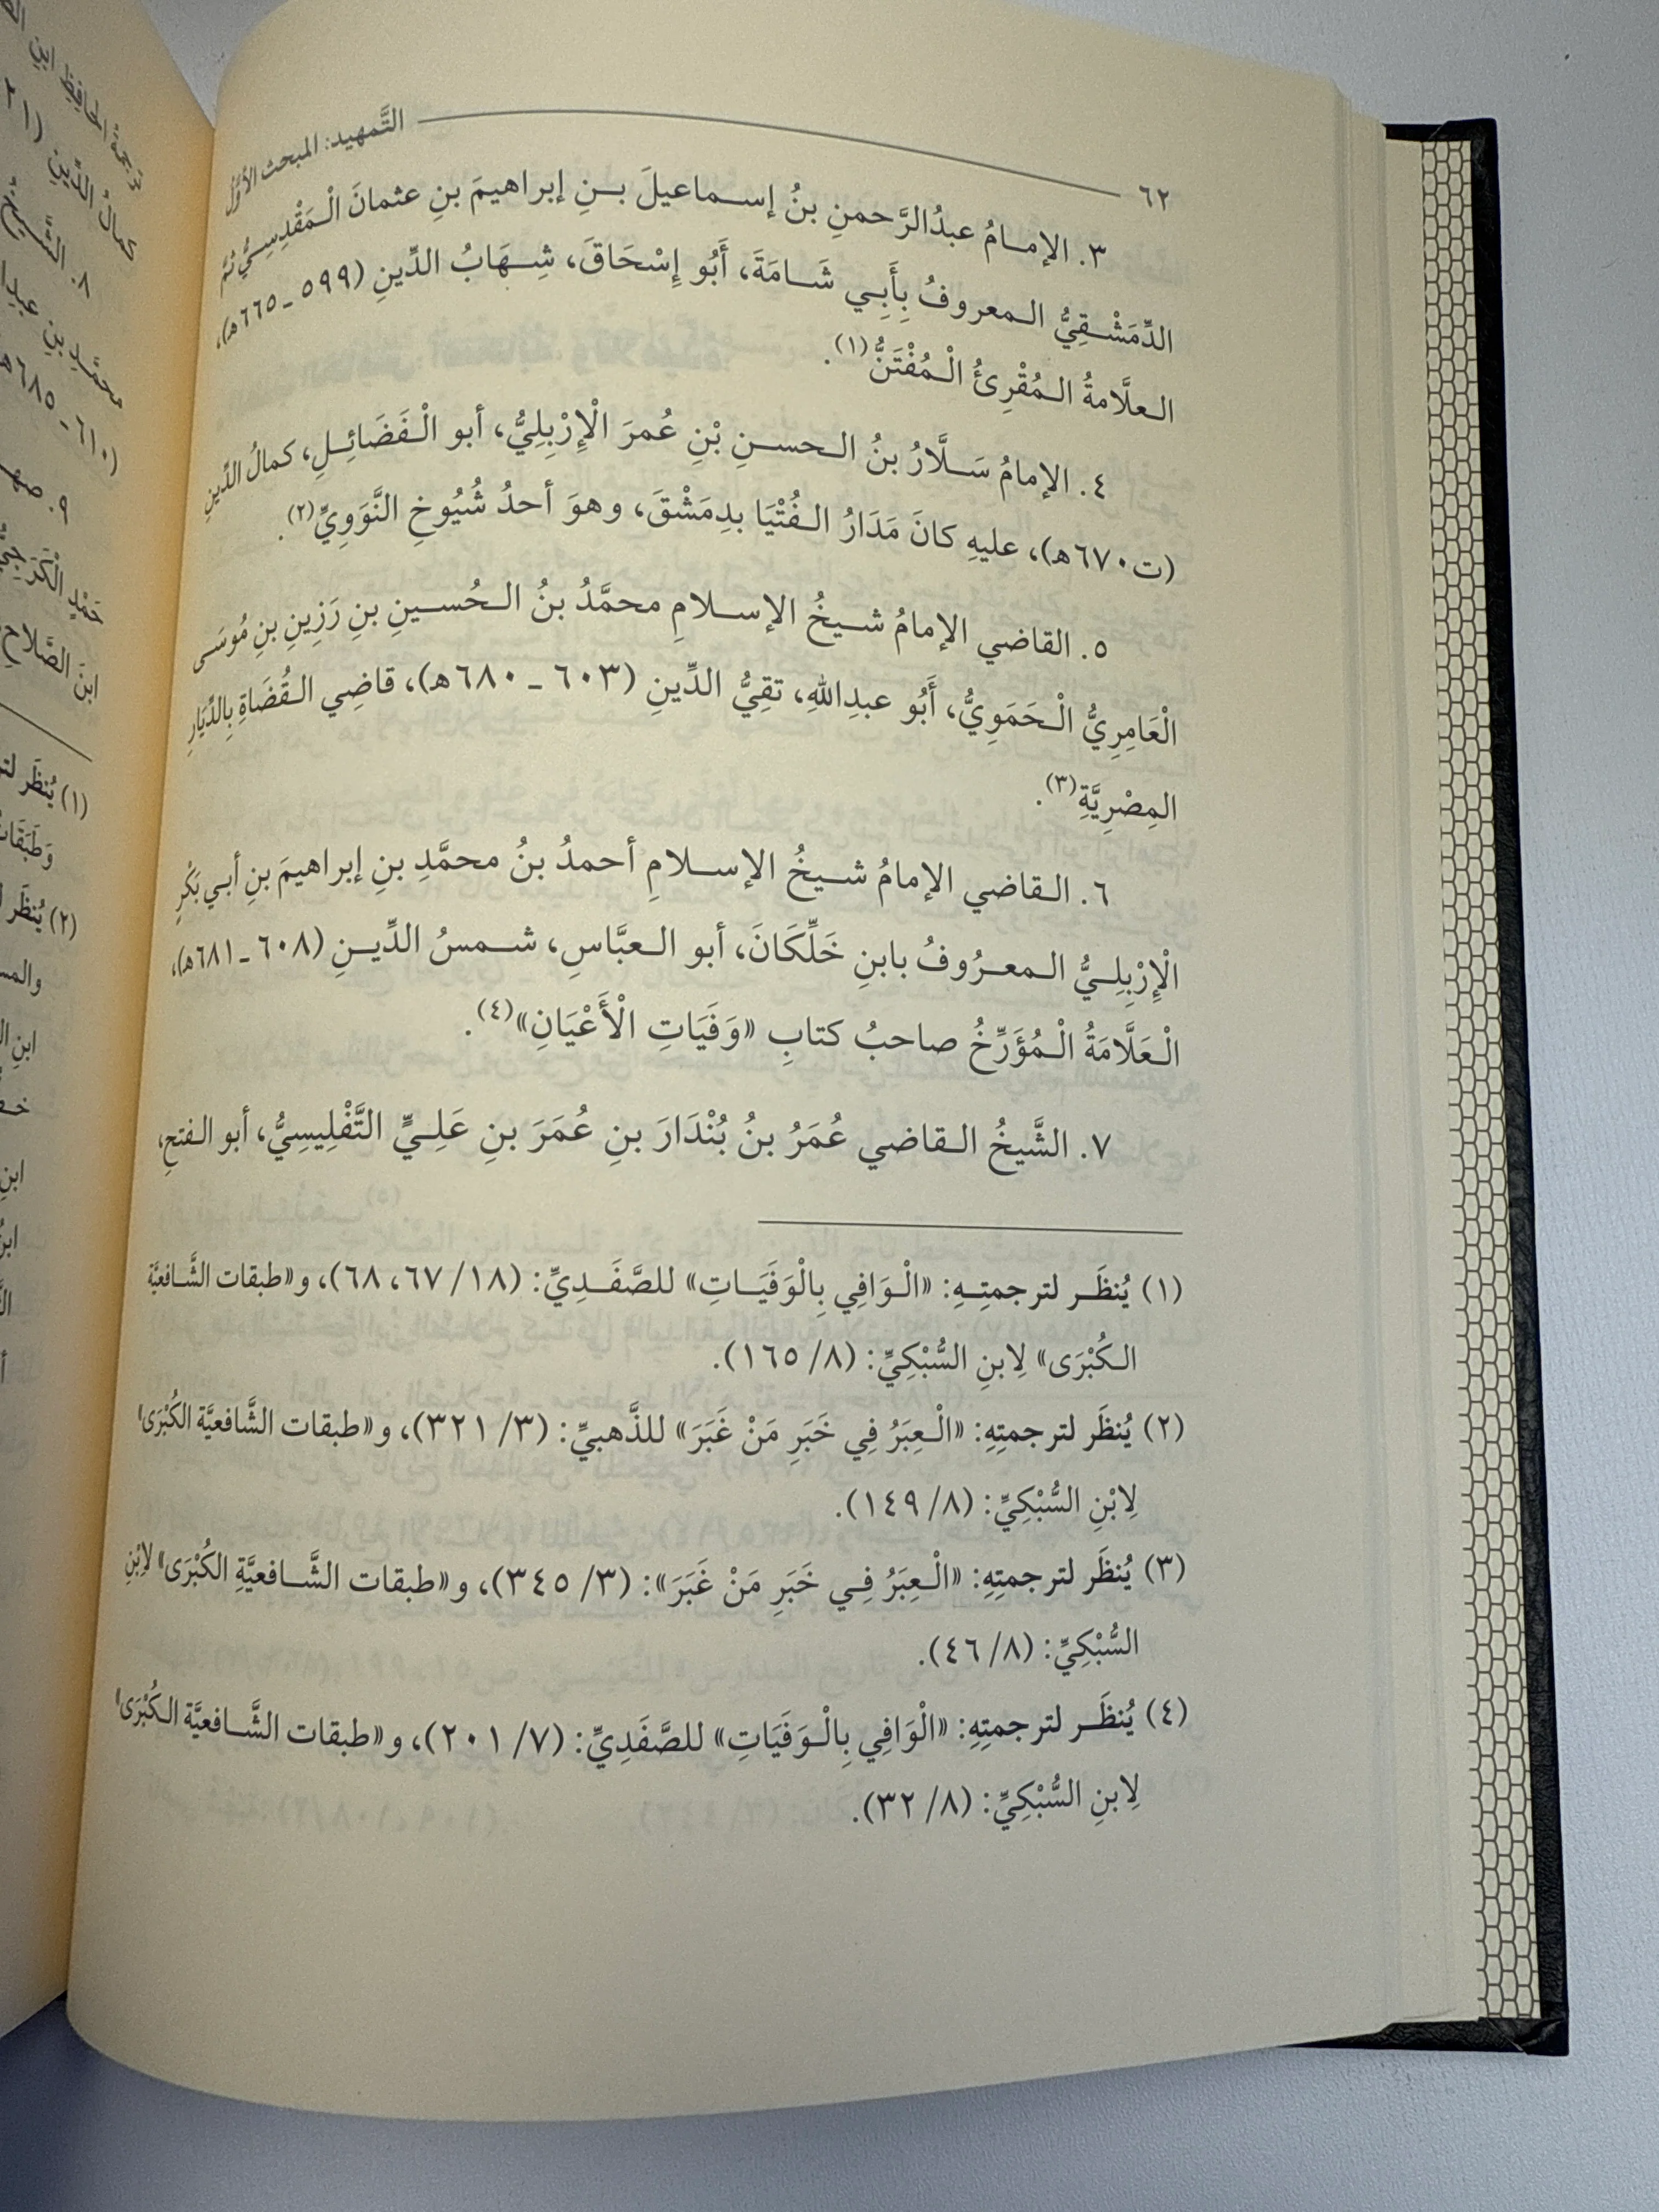 ٦٢
التَّمهيد: المبحث الأوَّل
٣. الإمـامُ عبدُالرَّحمنِ بنُ إسـماعيلَ بـنِ إبراهيمَ بنِ عثمانَ الْـمَقْدِسِـيُّ ثُمَّ
الدِّمَشْـقِيُّ الـمعروفُ بِأَبِـي شَـامَةَ، أَبُو إِسْحَاقَ، شِـهَابُ الدِّينِ (٥٩٩ ـ ٦٦٥هـ)،
العلَّامةُ الـمُقْرِئُ الْـمُفْتَنُّ(١).
٤. الإمامُ سَـلَّارُ بنُ الـحسـنِ بْنِ عُمرَ الْإِرْبِلِيُّ، أبو الْـفَضَائِـلِ، كمالُ الدِّينِ
(ت٦٧٠هـ)، عليهِ كانَ مَدَارُ الـفُتْيَا بدِمَشْقَ، وهوَ أحدُ شُيُوخِ النَّوَوِيِّ(٢).
٥. القاضي الإمامُ شـيخُ الإسـلامِ محمَّدُ بنُ الـحُسـينِ بنِ رَزِينِ بنِ مُوسَى
الْعَامِرِيُّ الْـحَمَوِيُّ، أَبُو عبدِاللهِ، تقِيُّ الدِّينِ (٦٠٣ ـ ٦٨٠هـ)، قاضِي الـقُضَاةِ بِالدِّيَارِ
المِصْرِيَّةِ(٣).
٦. الـقاضي الإمامُ شـيخُ الإسـلامِ أحمدُ بنُ محمَّدِ بنِ إبراهيمَ بنِ أبي بَكْرٍ
الْإِرْبِلِـيُّ الـمعـرُوفُ بابنِ خَلِّكَانَ، أبو الـعبَّاسِ، شـمسُ الدِّيـنِ (٦٠٨ ـ ٦٨١هـ)،
الْـعَلَّامَةُ الْـمُؤَرِّخُ صاحبُ كتابِ «وَفَيَاتِ الْأَعْيَانِ»(٤).
٧. الشَّيخُ الـقاضي عُمَرُ بنُ بُنْدَارَ بنِ عُمَرَ بنِ عَلِـيٍّ التَّفْلِيسِيُّ، أبو الـفتحِ،
(١) يُنظَـر لترجمتِـهِ: «الْـوَافِي بِالْوَفَيَـاتِ» للصَّفَـدِيِّ: (١٨/ ٦٧، ٦٨)، و«طبقات الشَّـافعيَّة
الـكُبْرَى» لِابنِ السُّبْكِيِّ: (٨/ ١٦٥).
(٢) يُنظَر لترجمتِهِ: «الْـعِبَرُ فِي خَبَرِ مَنْ غَبَرَ» للذَّهبيِّ: (٣/ ٣٢١)، و«طبقات الشَّافعيَّة الكُبْرَى»
لِابْنِ السُّبْكِيِّ: (٨/ ١٤٩).
(٣) يُنظَر لترجمتِهِ: «الْـعِبَرُ فِـي خَبَرِ مَنْ غَبَرَ»: (٣/ ٣٤٥)، و«طبقات الشَّـافعيَّةِ الكُبْرَى» لِابْنِ
السُّبْكِيِّ: (٨/ ٤٦).
(٤) يُنظَـر لترجمتِهِ: «الْوَافِي بِالْـوَفَيَاتِ» للصَّفَدِيِّ: (٧/ ٢٠١)، و«طبقات الشَّـافعيَّة الـكُبْرَى»
لِابنِ السُّبْكِيِّ: (٨/ ٣٢).